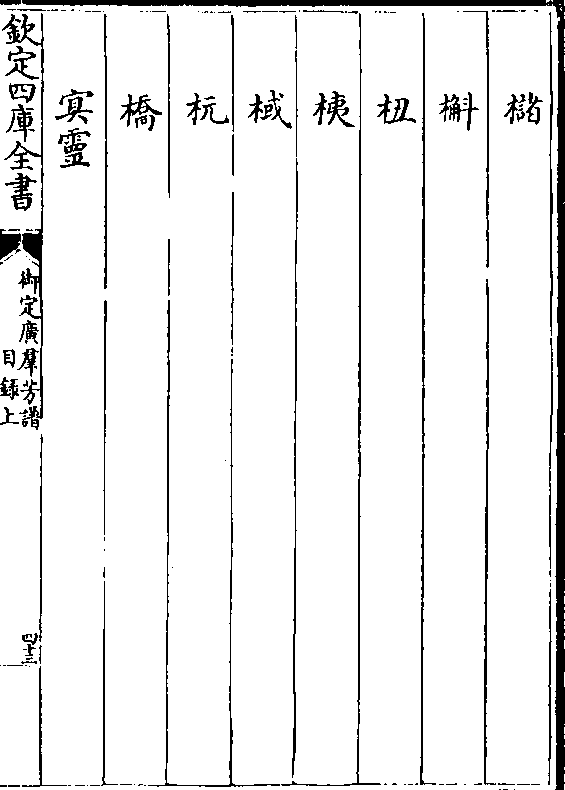 櫧
槲
杻
桋
棫
杬
橋
㝠靈
欽定四庫全書
御定廣羣芳譜
目録上
四十三